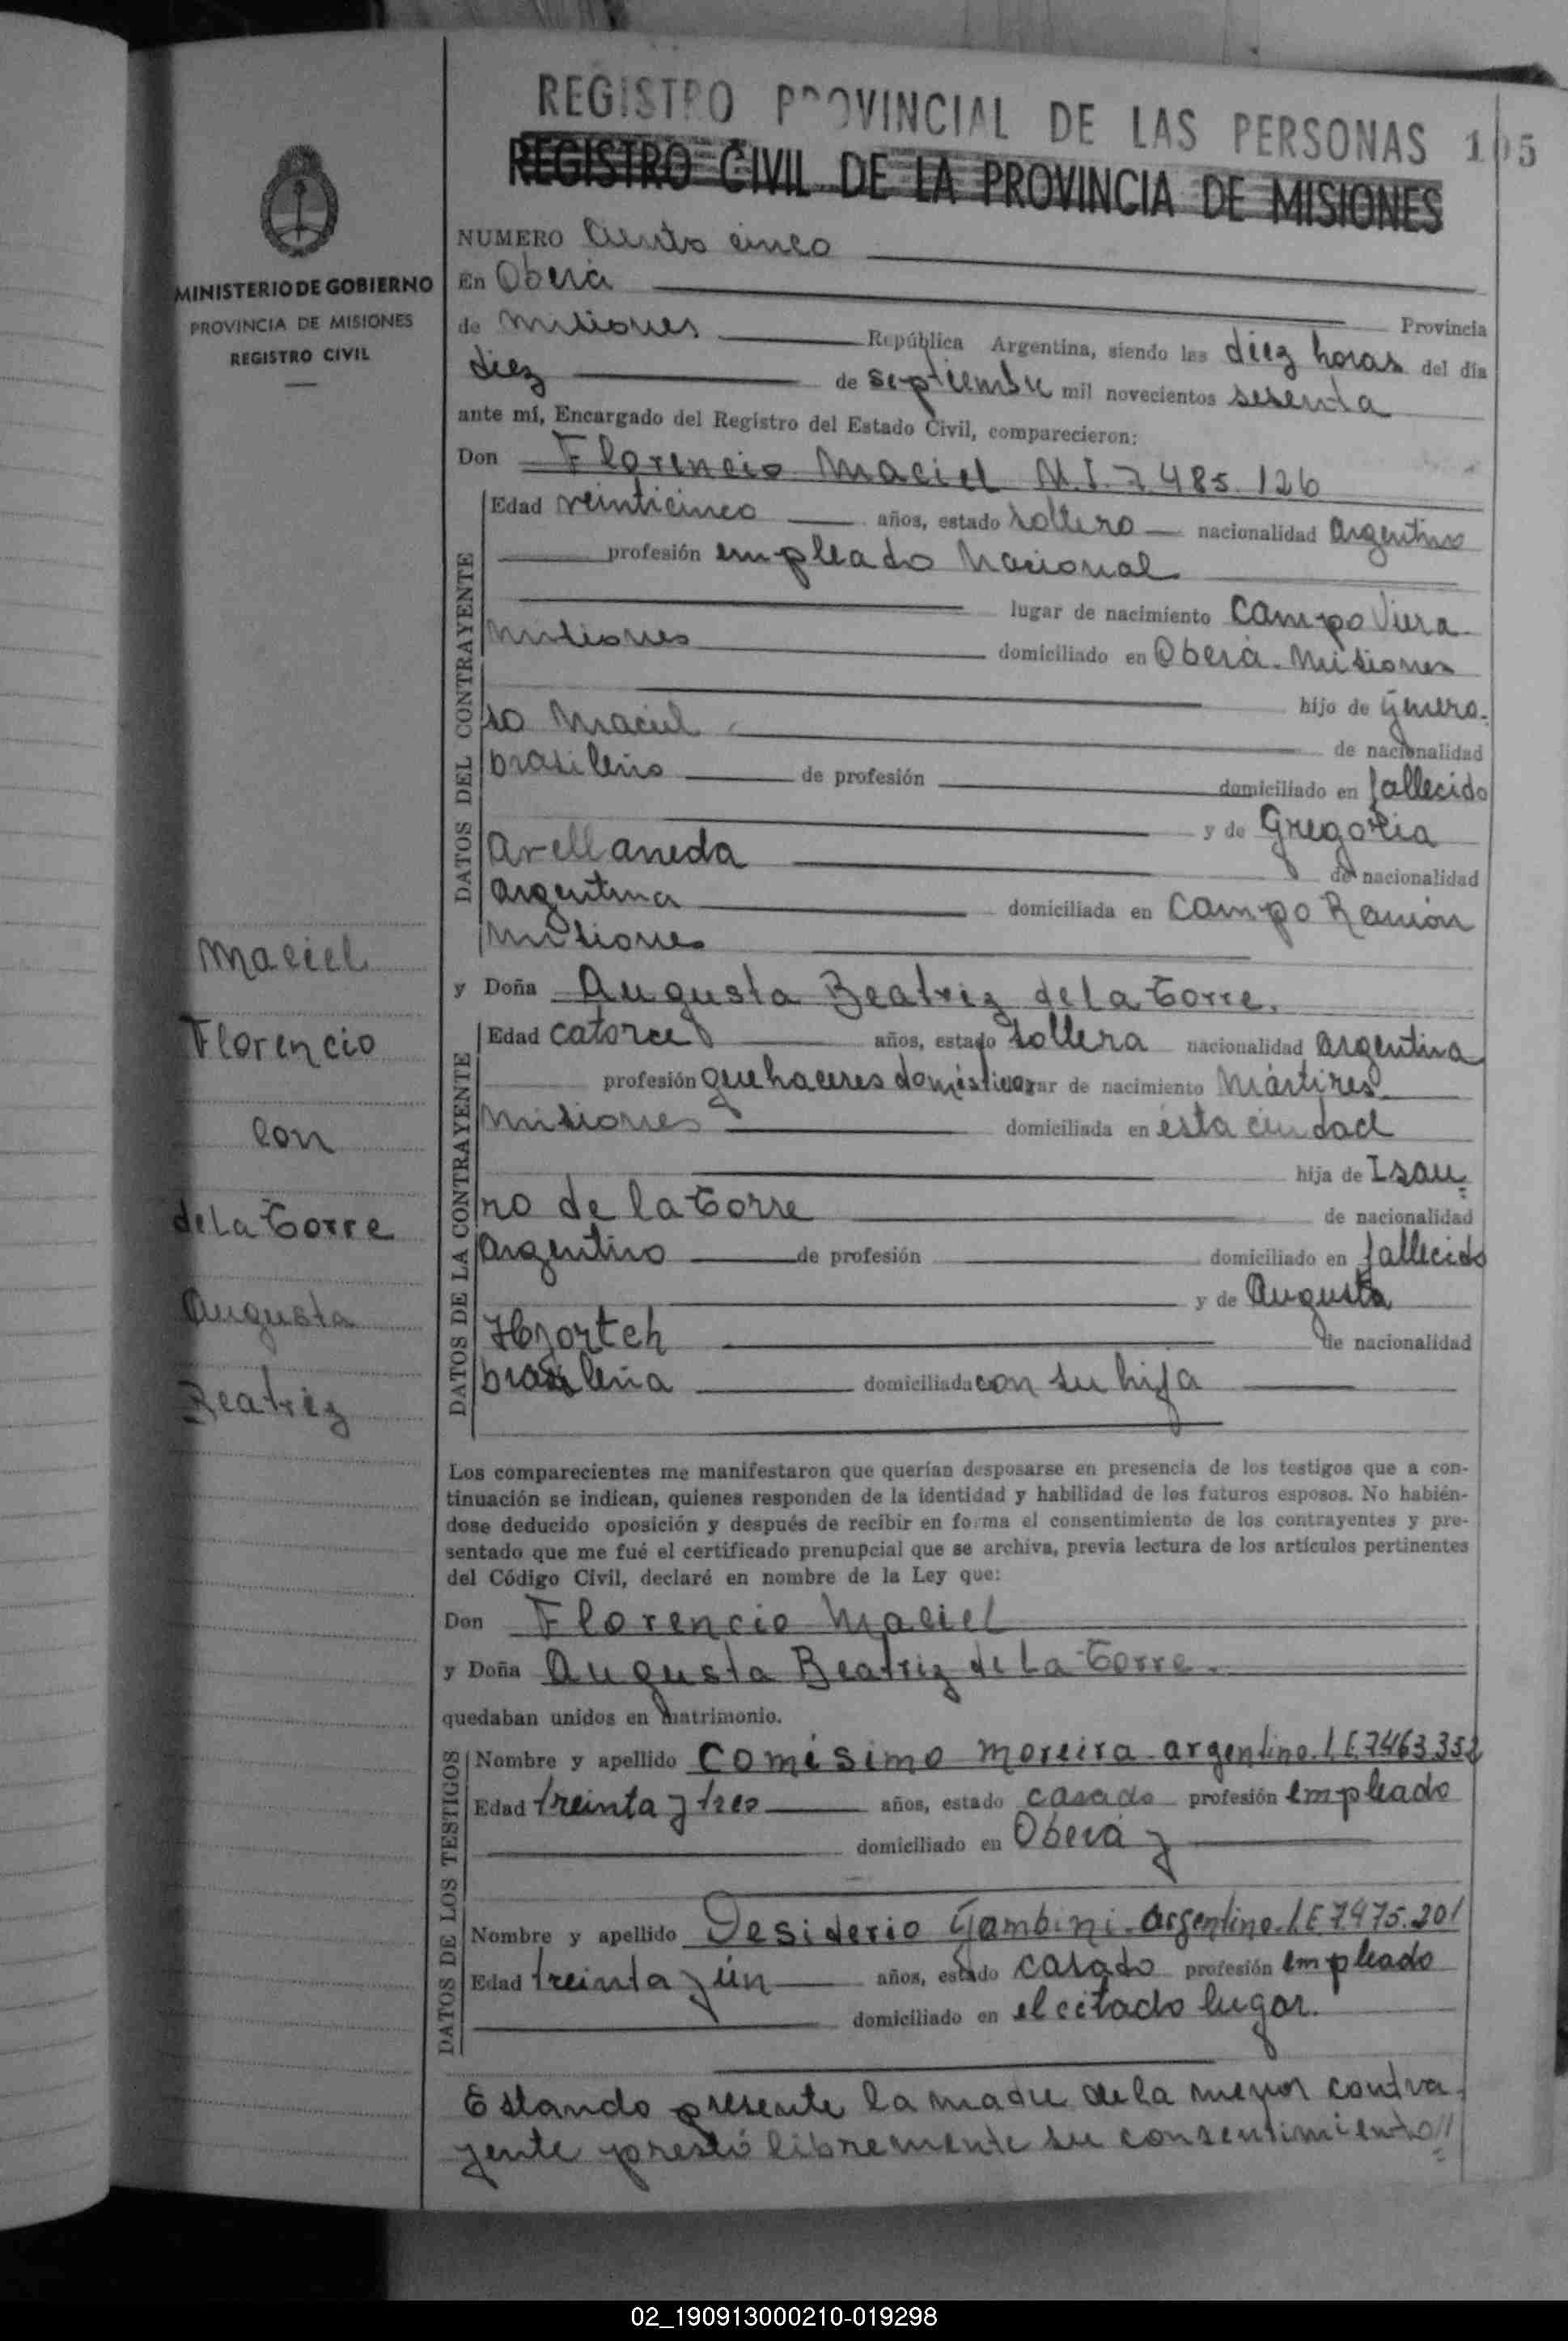 REGISTRO PROVINCIAL DE LAS PERSONAS 105
REGISTRO CIVIL DE LA PROVINCIA DE MISIONES
MINISTERIO DE GOBIERNO
PROVINCIA DE MISIONES
REGISTRO CIVIL
NUMERO Ciento cinco
En Oberá
Provincia
de Misiones República Argentina, siendo las diez horas del día
diez de septiembre mil novecientos sesenta
ante mí, Encargado del Registro del Estado Civil, comparecieron:
Don Florencio Maciel M.I. 7.485.126
DATOS DEL CONTRAYENTE
Edad veinticinco años, estado soltero nacionalidad argentino
profesión empleado Nacional
lugar de nacimiento Campo Viera
Misiones domiciliado en Oberá. Misiones
hijo de Genero-
so Maciel de nacionalidad
brasileño de profesión domiciliado en fallecido
y de Gregoria
Avellaneda de nacionalidad
argentina domiciliada en Campo Ramón
Misiones
y Doña Augusta Beatriz de la Torre.
DATOS DE LA CONTRAYENTE
Edad catorce años, estado soltera nacionalidad argentina
profesión quehaceres domésticos lugar de nacimiento Mártires
Misiones domiciliada en ésta ciudad
hija de Isau=
ro de la Torre de nacionalidad
Argentino de profesión domiciliado en fallecido
y de Augusta
de nacionalidad
brasileña domiciliada con su hija
Maciel
Florencio
con
de La Torre
Augusta
Beatriz
Los comparecientes me manifestaron que querían desposarse en presencia de los testigos que a con-
tinuación se indican, quienes responden de la identidad y habilidad de los futuros esposos. No habién-
dose deducido oposición y después de recibir en forma el consentimiento de los contrayentes y pre-
sentado que me fué el certificado prenupcial que se archiva, previa lectura de los artículos pertinentes
del Código Civil, declaré en nombre de la Ley que:
Don Florencio Maciel
y Doña Augusta Beatriz de La Torre.
quedaban unidos en matrimonio.
DATOS DE LOS TESTIGOS
Nombre y apellido Comísimo Moreira argentino. L.E. 7463352
Edad treinta y tres años, estado casado profesión empleado
domiciliado en Oberá y
Nombre y apellido Desiderio Gambini. Argentino. L.E. 7.475.201
Edad treinta y ún años, estado casado profesión empleado
domiciliado en el citado lugar.
Estando presente la madre de la menor contra
yente prestó libremente su consentimiento//
02_190913000210-019298